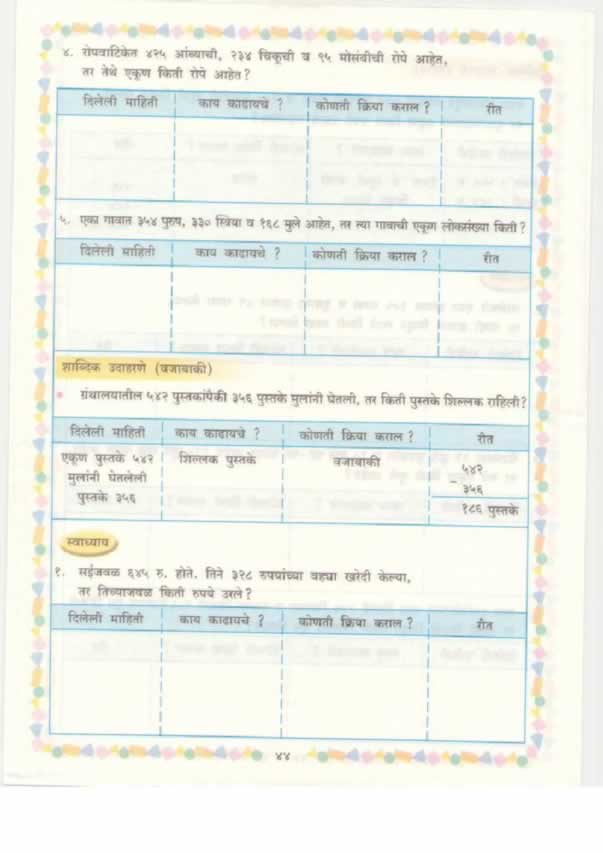 ४. रोपवाटिकेत ४२५ आंब्याची, २३४ चिकूची व ९५ मोसंबीची रोपे आहेत,
तर तेथे एकूण किती रोपे आहेत?
दिलेली माहिती काय काढायचे ? कोणती क्रिया कराल ? रीत
५. एका गावात ३५४ पुरुष, ३३० स्त्रिया व १६८ मुले आहेत, तर त्या गावाची एकूण लोकसंख्या किती?
दिलेली माहिती काय काढायचे ? कोणती क्रिया कराल ? रीत
शाब्दिक उदाहरणे (वजाबाकी)
ग्रंथालयातील ५४२ पुस्तकांपैकी ३५६ पुस्तके मुलांनी घेतली, तर किती पुस्तके शिल्लक राहिली?
दिलेली माहिती काय काढायचे ? कोणती क्रिया कराल ? रीत
एकूण पुस्तके ५४२ शिल्लक पुस्तके वजाबाकी ५४२
मुलांनी घेतलेली -
पुस्तके ३५६ ३५६
१८६ पुस्तके
स्वाध्याय
१. सईजवळ ६४५ रु. होते. तिने ३२८ रुपयांच्या वह्या खरेदी केल्या,
तर तिच्याजवळ किती रुपये उरले?
दिलेली माहिती काय काढायचे ? कोणती क्रिया कराल ? रीत
४४